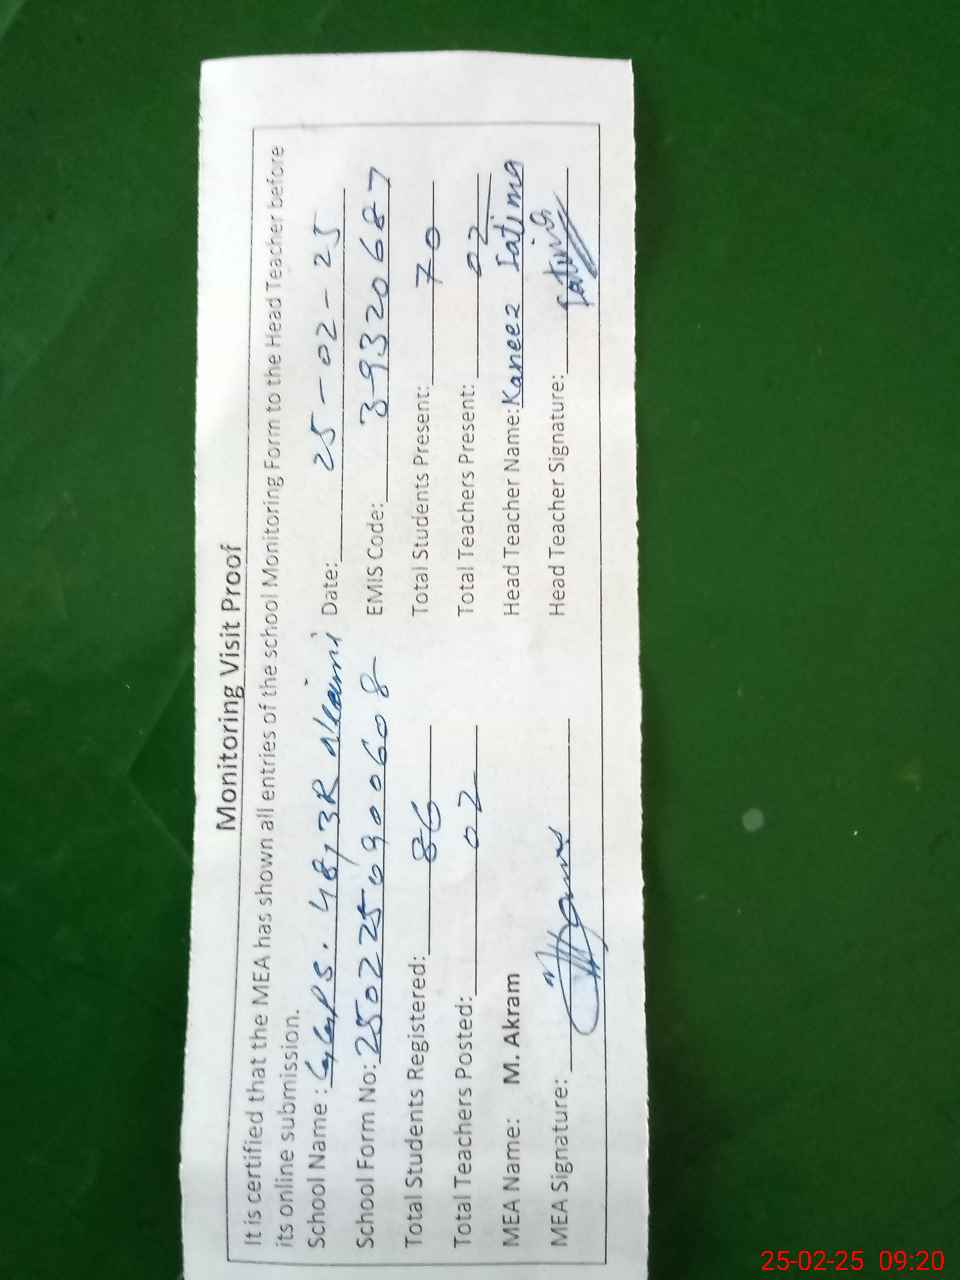 Monitoring Visit Proof
It is certified that the MEA has shown all entries of the school Monitoring Form to the Head Teacher before
its online submission.
School Name : 48/3R Date: 25-02-25
School Form No: 250225090608 EMIS Code: 39320687
Total Students Registered: 86 Total Students Present: 70
Total Teachers Posted: 02 Total Teachers Present: 02
MEA Name: M. Akram Head Teacher Name: Kaneez Fatima
MEA Signature: Head Teacher Signature: Fatima
25-02-25 09:20